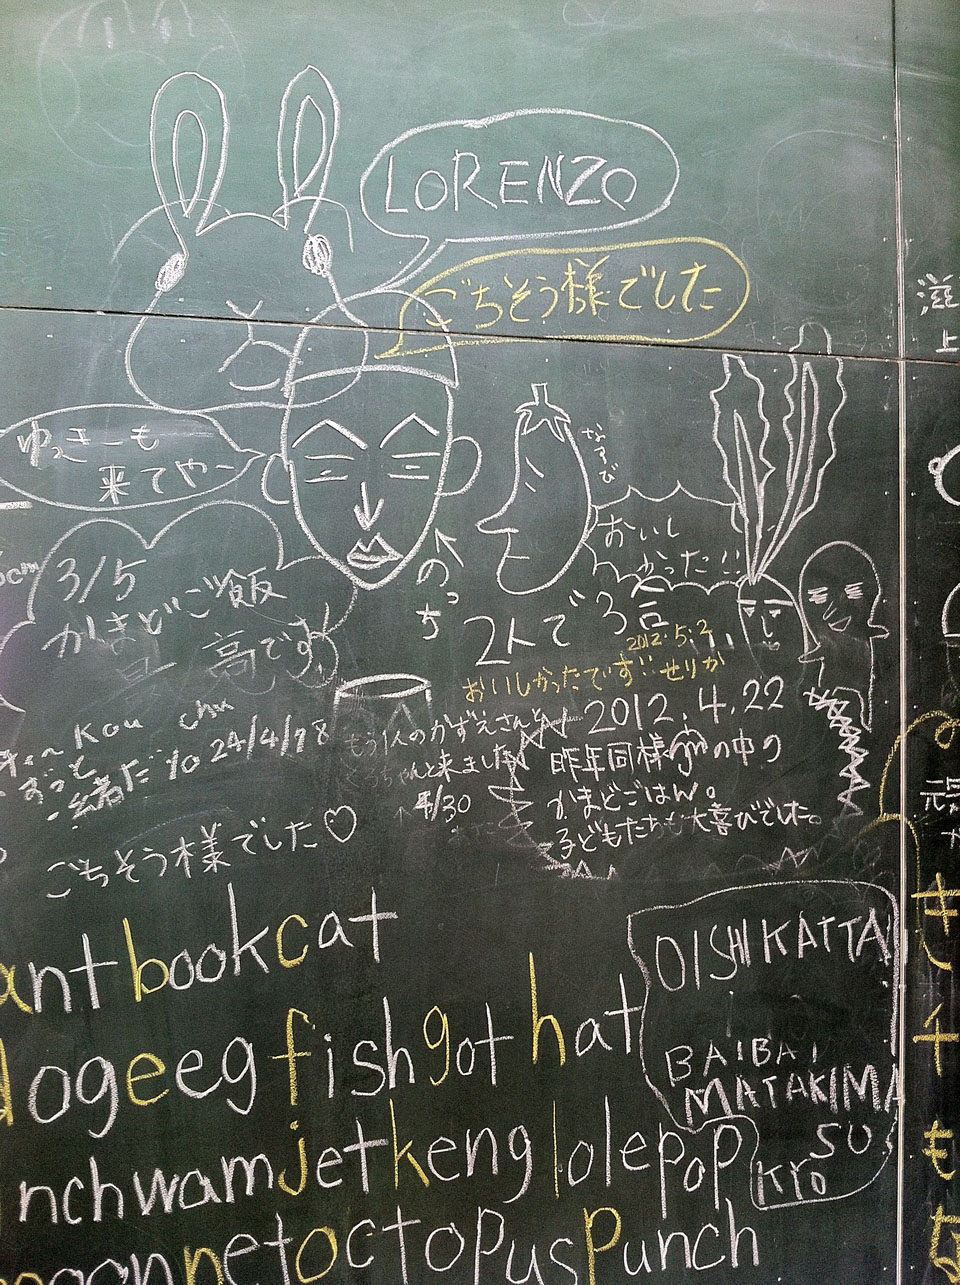 LORENZO
ごちそう様でした
ゆっきーも
来てや〜
なすび
おいし
かった!!
のっち
3/5
かまどご飯
最高です
2人で3合
2012.5.2
おいしかったです せりか
2012.4.22
昨年同様の中の
かまどごはん。
子どもたちも大喜びでした。
Kou chu
ずっと
一緒だ 24/4/18
もう1人のかずえさんと
と来ました
4/30
ごちそう様でした♡
ant book cat
dog eeg fish got hat
nch wam jet keng lolepop
net octopus punch
OISHIKATTA
BAIBAI
MATAKIMA
SU
Kyo
滋
上
き
イ
も
な